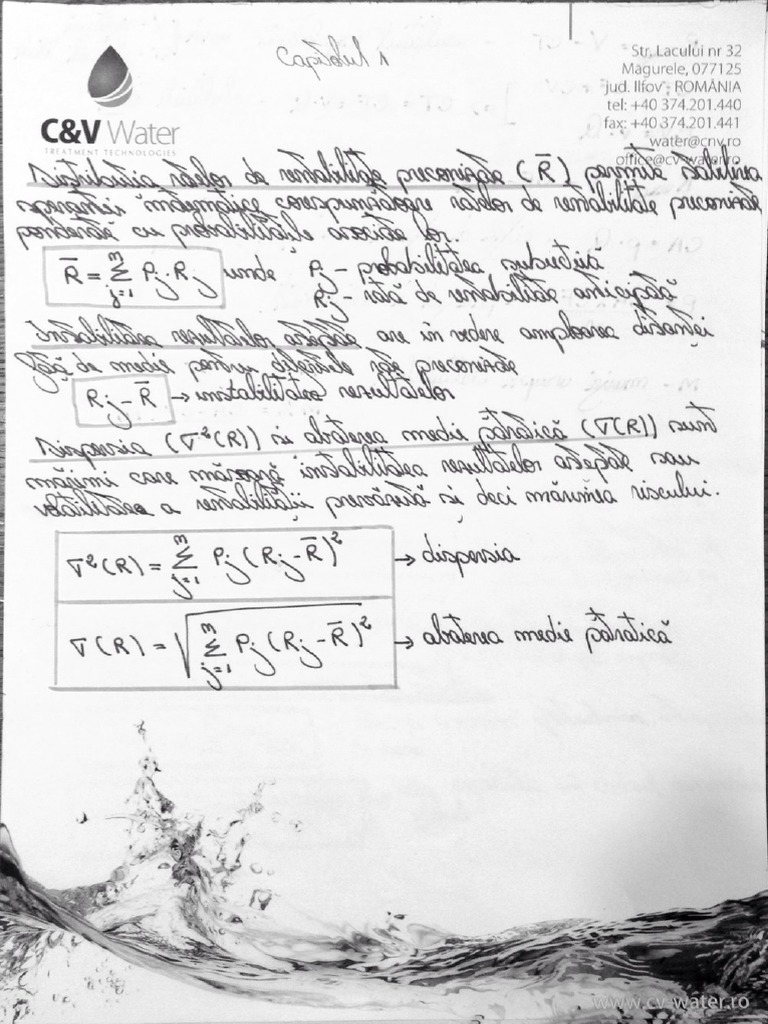 Capitolul 1
C&V Water
TREATMENT TECHNOLOGIES
Str. Lacului nr 32
Magurele, 077125
Jud. Ilfov, ROMÂNIA
tel: +40 374.201.440
fax: +40 374.201.441
water@cnv.ro
office@cv-water.ro
Distribuția ratelor de rentabilitate preconizate (R̅) permite stabilirea
speranței matematice corespunzătoare ratelor de rentabilitate preconizate
ponderate cu probabilitățile asociate lor.
R̅ = Σ_{j=1}^{3} Pj · Rj unde Pj - probabilitatea subiectivă
Rj - rată de rentabilitate anticipată
Instabilitatea rezultatelor așteptate are în vedere amploarea distanței
față de medie pentru diferitele rate preconizate
Rj - R̅ → instabilitatea rezultatelor
Dispersia (σ²(R)) și abaterea medie pătratică (σ(R)) sunt
mărimi care măsoară instabilitatea rezultatelor așteptate sau
volatilitatea a rentabilității prevăzută și deci mărimea riscului.
σ²(R) = Σ_{j=1}^{3} Pj (Rj - R̅)² → dispersia
σ(R) = √(Σ_{j=1}^{3} Pj (Rj - R̅)²) → abaterea medie pătratică
www.cv-water.ro